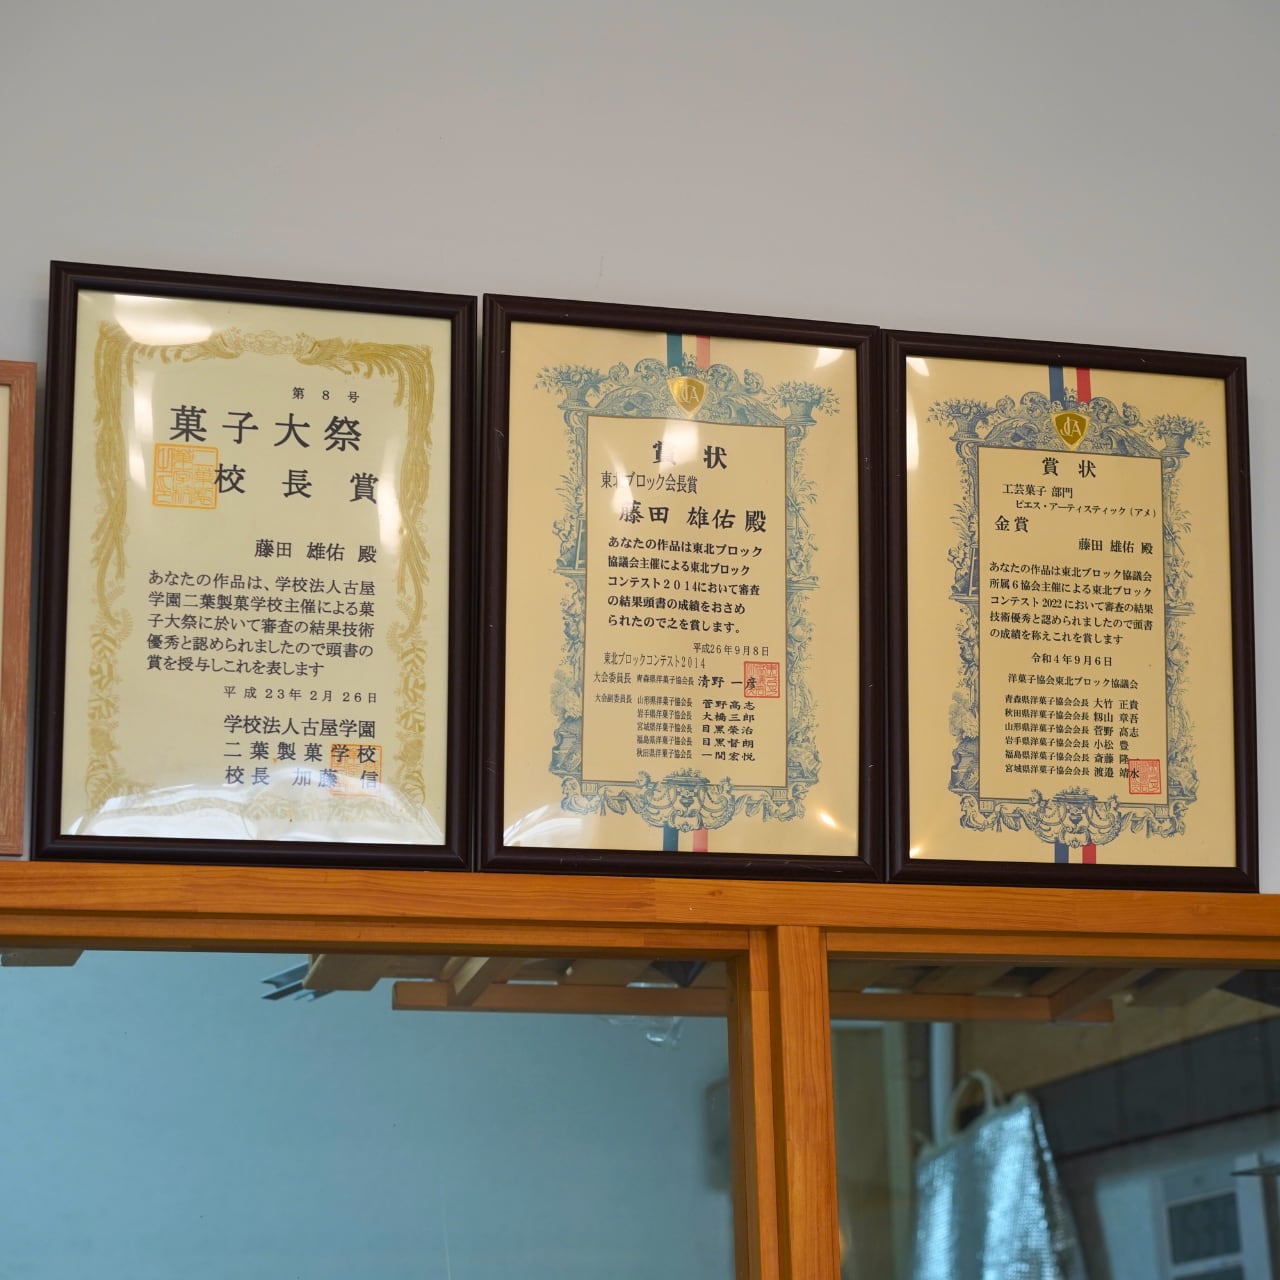 第８号
菓子大祭
校長賞
藤田 雄佑 殿
あなたの作品は、学校法人古屋
学園二葉製菓学校主催による菓
子大祭に於いて審査の結果技術
優秀と認められましたので頭書の
賞を授与しこれを表します
平成２３年２月２６日
学校法人古屋学園
二葉製菓学校
校長 加藤 信
賞状
東北ブロック会長賞
藤田 雄佑 殿
あなたの作品は東北ブロック
協議会主催による東北ブロック
コンテスト２０１４において審査
の結果頭書の成績をおさめ
られたので之を賞します。
平成26年９月８日
東北ブロックコンテスト2014
大会委員長 青森県洋菓子協会長 清野 一彦
大会副委員長 山形県洋菓子協会長 菅野高志
岩手県洋菓子協会長 大橋三郎
宮城県洋菓子協会長 目黒榮治
福島県洋菓子協会長 目黒督朗
秋田県洋菓子協会長 一関宏悦
JCA
賞状
工芸菓子 部門
ピエス・アーティスティック（アメ）
金賞
藤田 雄佑 殿
あなたの作品は東北ブロック協議会
所属６協会主催による東北ブロック
コンテスト2022において審査の結果
技術優秀と認められましたので頭書
の成績を称えこれを賞します
令和４年９月６日
洋菓子協会東北ブロック協議会
青森県洋菓子協会会長 大竹 正貴
秋田県洋菓子協会会長 籾山 章吾
山形県洋菓子協会会長 菅野 高志
岩手県洋菓子協会会長 小松 豊
福島県洋菓子協会会長 斎藤 隆
宮城県洋菓子協会会長 渡邉 靖水
JCA